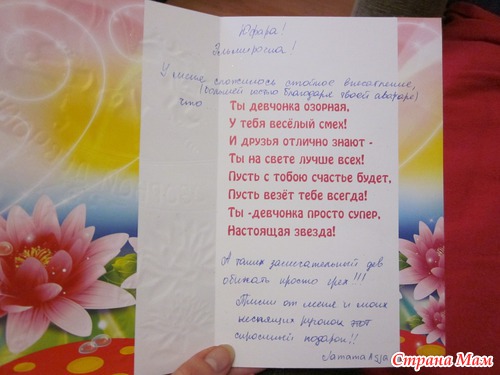 Юфара!
Эльмировна!
У меня сложилось стойкое впечатление,
(большей частью благодаря твоей аватаре)
что
Ты девчонка озорная,
У тебя весёлый смех!
И друзья отлично знают -
Ты на свете лучше всех!
Пусть с тобою счастье будет,
Пусть везёт тебе всегда!
Ты -девчонка просто супер,
Настоящая звезда!
А таких замечательных дев
обижать просто грех!!!
Прими от меня и моих
неспящих
этот
скромный подарок!!
Страна Мам